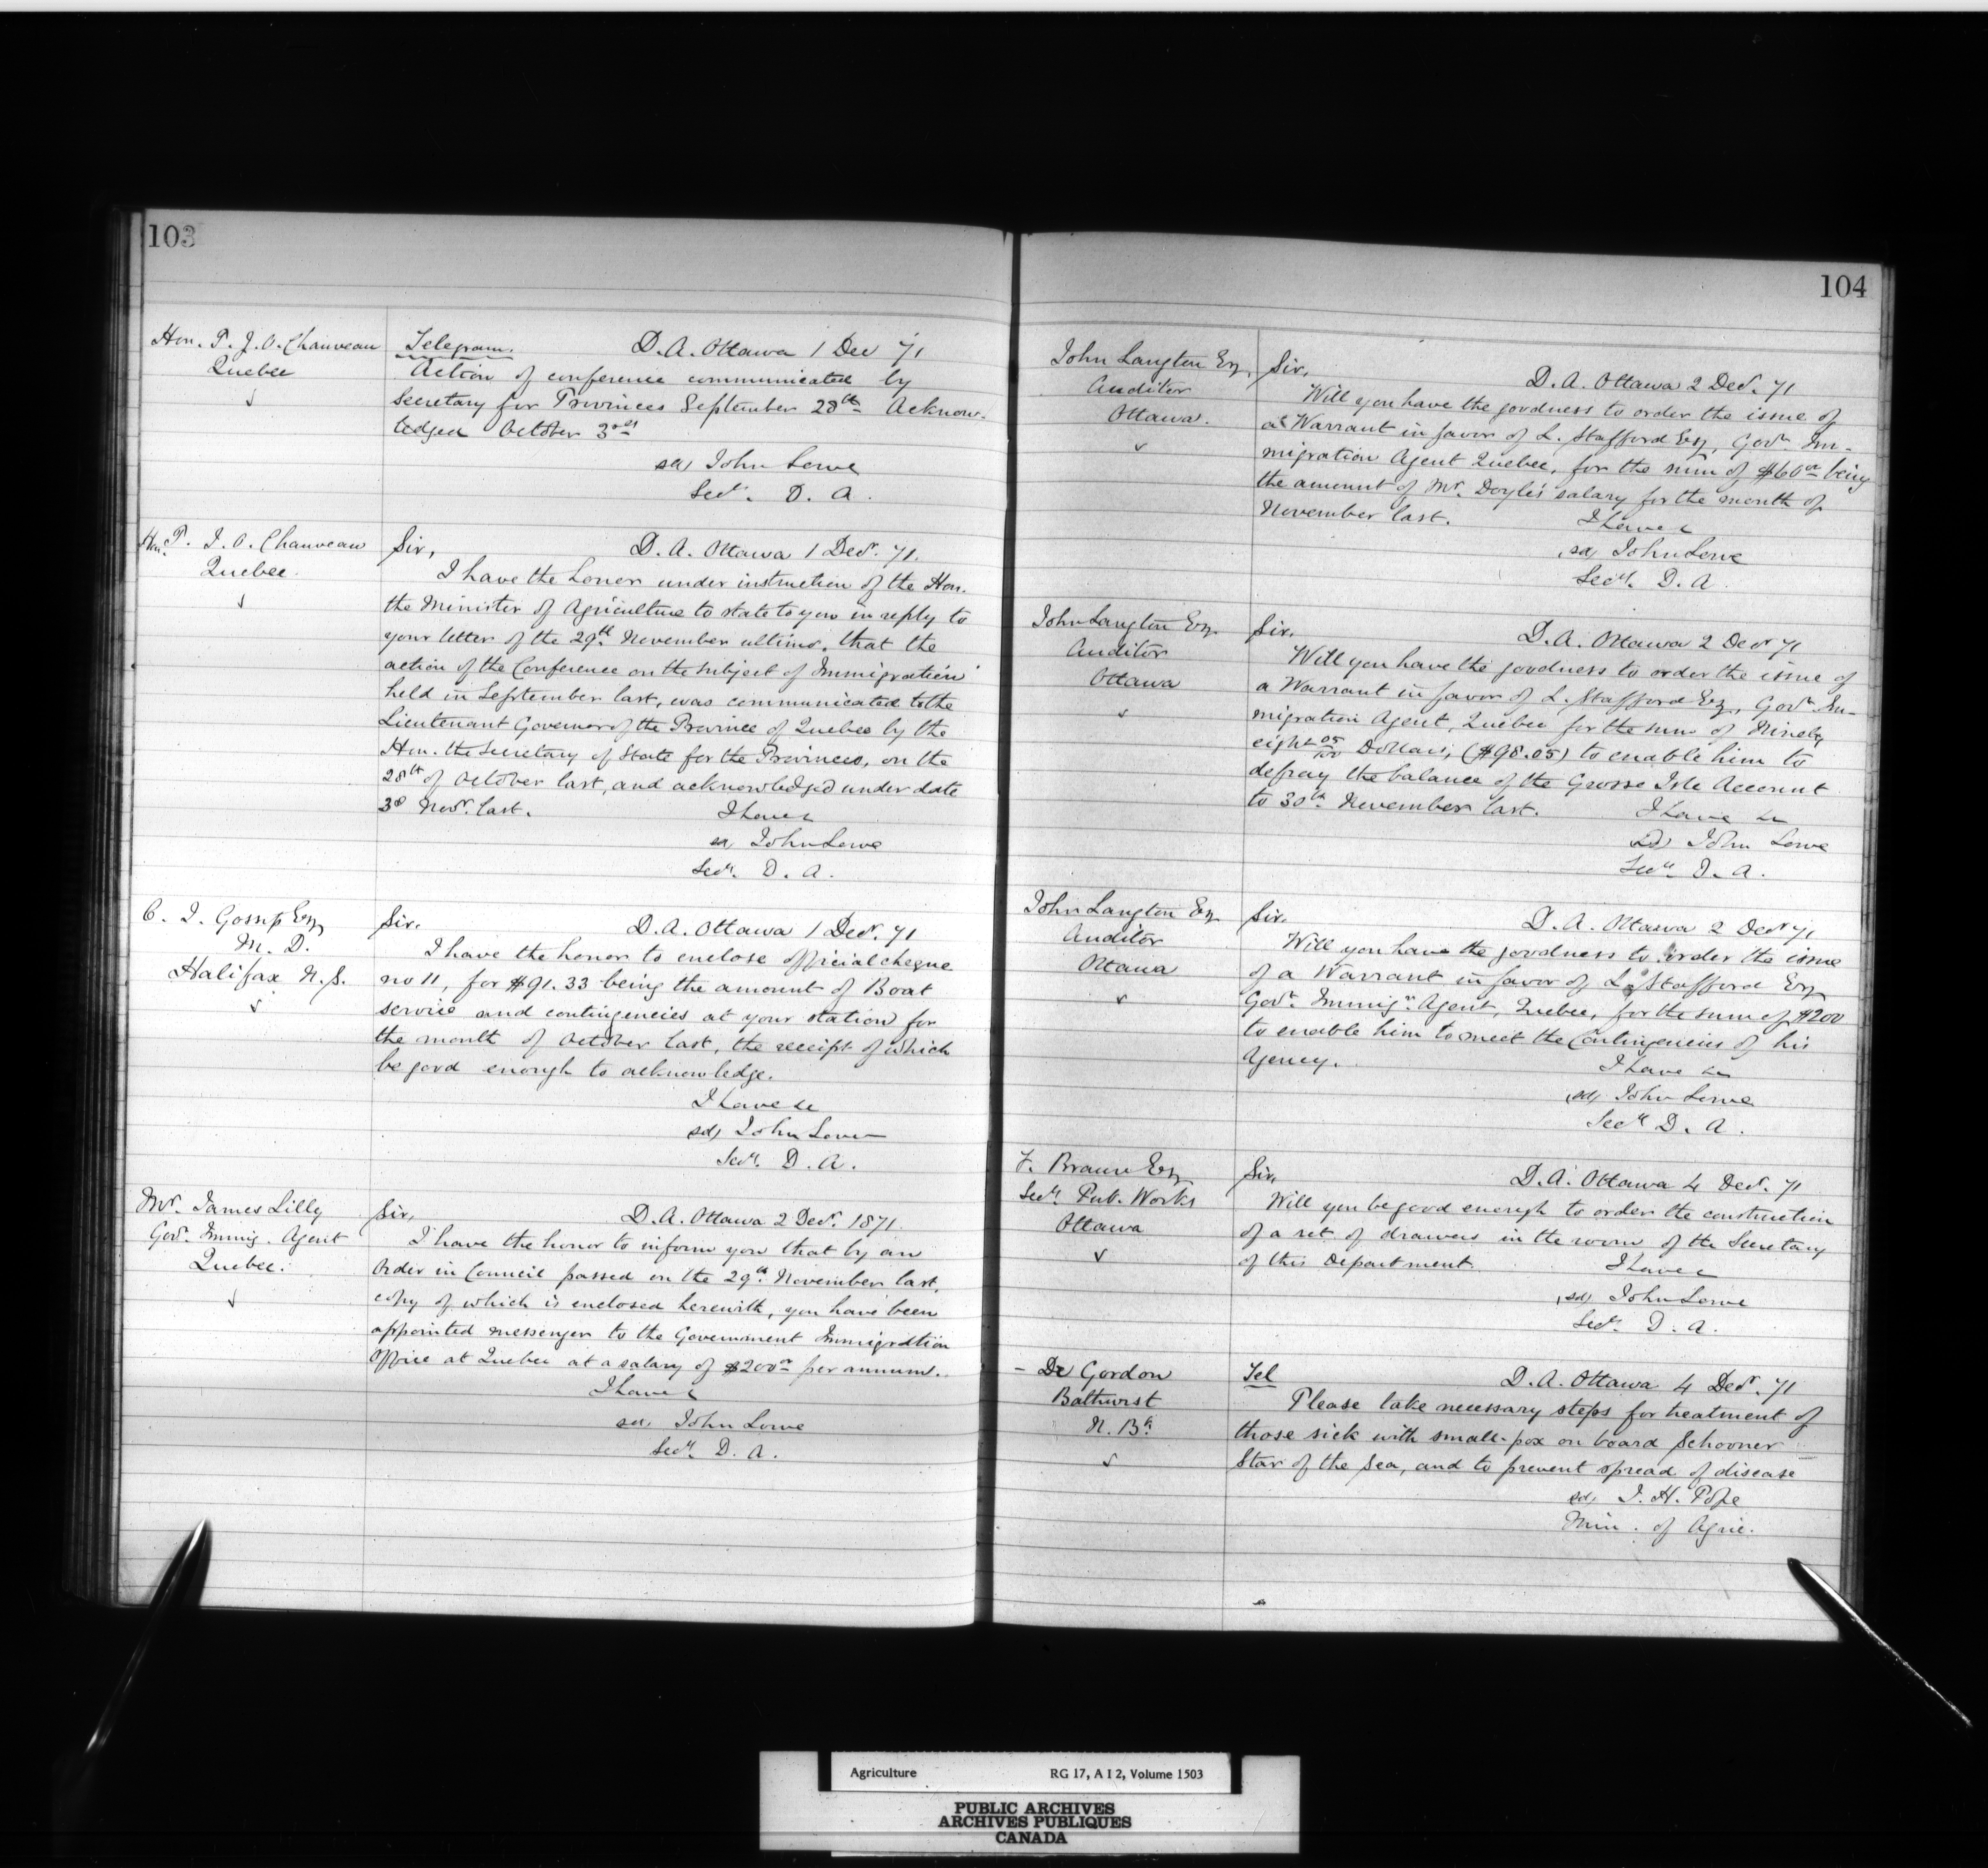 103
Hon. P. J. O. Chauveau
Quebec
Telegram. D. A. Ottawa 1 Dec 71
Action of conference communicated by
Secretary for Provinces September 28th Acknow-
ledged October 3rd
sd John Lowe
Secy. D. A.
Hon. P. J. O. Chauveau
Quebec
Sir, D. A. Ottawa 1 Decr. 71.
I have the honor under instruction of the Hon.
the Minister of Agriculture to state to you in reply to
your letter of the 29th November ultimo, that the
action of the Conference on the subject of Immigration
held in September last, was communicated to the
Lieutenant Governor of the Province of Quebec by the
Hon. the Secretary of State for the Provinces, on the
28th of October last, and acknowledged under date
3d Novr. last. I have &
sd John Lowe
Secy. D. A.
C. J. Gossip Esq
M. D.
Halifax N. S.
Sir. D. A. Ottawa 1 Decr. 71
I have the honor to enclose official cheque
no 11, for $91.33 being the amount of Boat
service and contingencies at your station for
the month of October last, the receipt of which
be good enough to acknowledge.
I have &c
sd, John Lowe
Secy. D. A.
Mr. James Lilly
Govt. Immig. Agent
Quebec.
Sir, D. A. Ottawa 2 Decr. 1871.
I have the honor to inform you that by an
Order in Council passed on the 29th November last,
copy of which is enclosed herewith, you have been
appointed messenger to the Government Immigration
Office at Quebec at a salary of $200 per annum.
I have &
sd, John Lowe
Secy. D. A.
104
John Langton Esq,
Auditor
Ottawa.
Sir,
D. A. Ottawa 2 Decr. 71
Will you have the goodness to order the issue of
a Warrant in favor of L. Stafford Esq, Govt. Im-
migration Agent Quebec, for the sum of $60 being
the amount of Mr. Doyle's salary for the month of
November last. I have &
sd, John Lowe
Secy. D. A.
John Langton Esq.
Auditor
Ottawa
Sir. D. A. Ottawa 2 Decr 71
Will you have the goodness to order the issue of
a Warrant in favor of L. Stafford Esq, Govt. Im-
migration Agent, Quebec for the sum of Ninety
eight 05/100 Dollars, ($98.05) to enable him to
defray the balance of the Grosse Isle Account
to 30th November last. I have &c
sd, John Lowe
Secy. D. A.
John Langton Esq
Auditor
Ottawa
Sir. D. A. Ottawa 2 Decr 71
Will you have the goodness to order the issue
of a Warrant in favor of L. Stafford Esq
Govt. Immign. Agent, Quebec, for the sum of $200
to enable him to meet the Contingencies of his
Agency. I have &c
sd, John Lowe
Secy D. A.
F. Braun Esq
Secy. Pub. Works
Ottawa
Sir, D. A. Ottawa 4 Decr. 71
Will you be good enough to order the construction
of a set of drawers in the room of the Secretary
of this Department. I have &
sd, John Lowe
Secy. D. A.
- Dr Gordon
Bathurst
N. Bk
Tel D. A. Ottawa 4 Decr. 71
Please take necessary steps for treatment of
those sick with small-pox on board Schooner
Star of the Sea, and to prevent spread of disease
sd, J. H. Pope
Min. of Agric.
Agriculture RG 17, A I 2, Volume 1503
PUBLIC ARCHIVES
ARCHIVES PUBLIQUES
CANADA